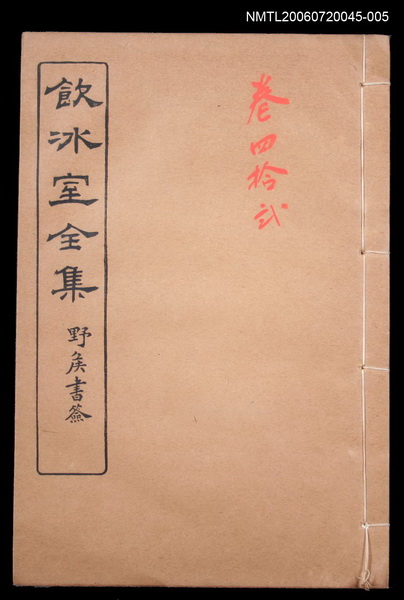 NMTL20060720045-005
卷四拾貳
飲冰室全集
野侯書簽